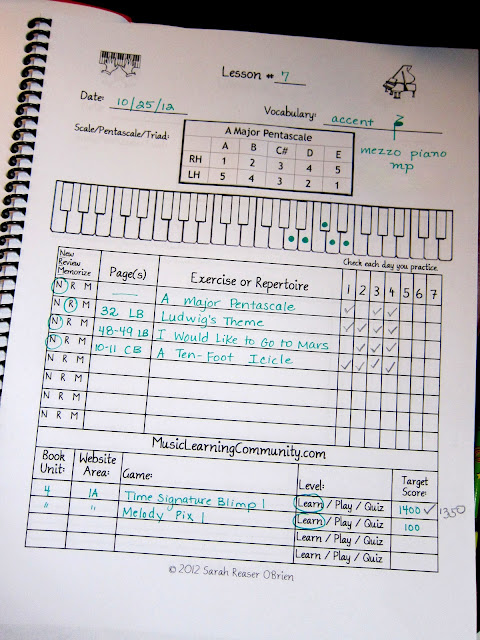 Lesson # 7
Date: 10/25/12
Vocabulary: accent
mezzo piano
mp
Scale/Pentascale/Triad:
A Major Pentascale
A B C# D E
RH 1 2 3 4 5
LH 5 4 3 2 1
Check each day you practice
New Review Memorize Page(s) Exercise or Repertoire 1 2 3 4 5 6 7
N R M — A major Pentascale ✓ ✓ ✓
N R M 32 LB Ludwig's Theme ✓ ✓ ✓ ✓
N R M 48-49 LB I Would Like to Go to Mars ✓ ✓ ✓
N R M 10-11 CB A Ten-Foot Icicle ✓ ✓ ✓ ✓
N R M
N R M
N R M
MusicLearningCommunity.com
Book Unit: Website Area: Game: Level: Target Score:
4 1A Time Signature Blimp 1 Learn / Play / Quiz 1400 ✓ 1350
" " Melody Pix 1 Learn / Play / Quiz 100
Learn / Play / Quiz
Learn / Play / Quiz
© 2012 Sarah Reaser O'Brien